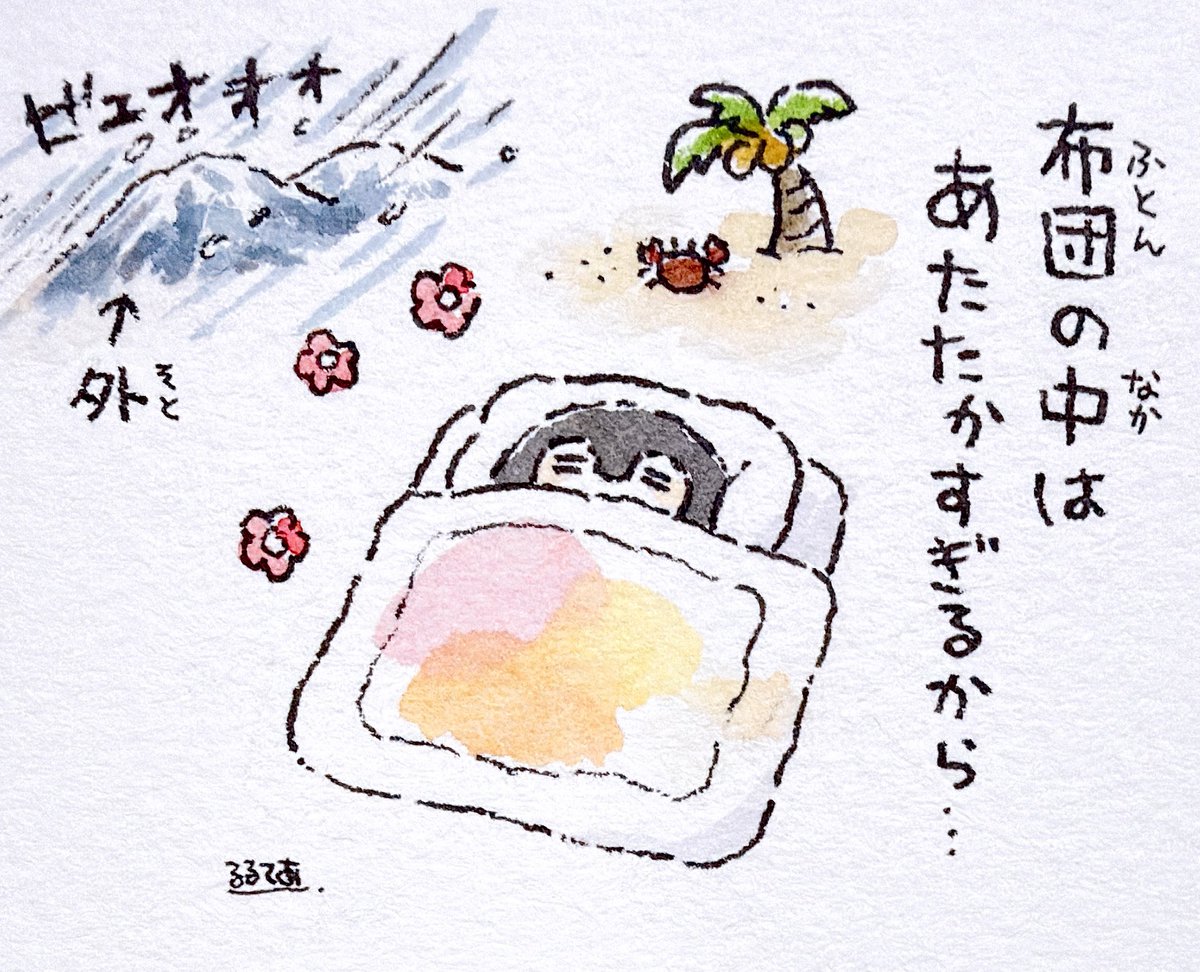 布団の中は
ふとん
なか
あたたかすぎるから…
ビュオオオ
外
そと
るるてあ.